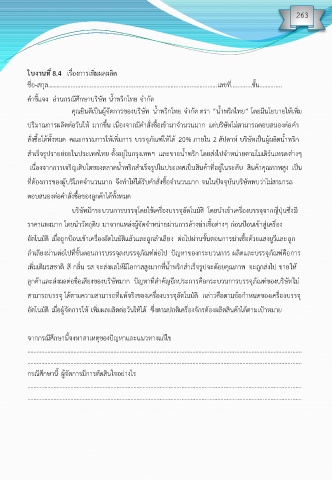 263
ใบงานที่ 8.4 เรื่องการเพิ่มผลผลิต
ชื่อ-สกุล.......................................เลขที่..............ชั้น..............
คำชี้แจง อ่านกรณีศึกษาบริษัท น้ำพริกไทย จำกัด
คุณยินดีเป็นผู้จัดการของบริษัท น้ำพริกไทย จำกัด ตรา "น้ำพริกไทย" โดยมีนโยบายให้เพิ่ม
ปริมาณการผลิตต่อวันให้ มากขึ้น เนื่องจากมีคำสั่งซื้อเข้ามาจำนวนมาก แต่บริษัทไม่สามารถตอบสนองต่อคำ
สั่งซื้อได้ทั้งหมด คณะกรรมการให้เพิ่มการ บรรจุภัณฑ์ให้ได้ 20% ภายใน 2 สัปดาห์ บริษัทเป็นผู้ผลิตน้ำพริก
สำเร็จรูปรายย่อยในประเทศไทย ตั้งอยู่ในกรุงเทพฯ และขายน้ำพริก โดยส่งไปจำหน่ายตามโมเดิร์นเทรดต่างๆ
เนื่องจากการเจริญเติบโตของตลาดน้ำพริกสำเร็จรูปในประเทศเป็นสินค้าที่อยู่ในระดับ สินค้าคุณภาพสูง เป็น
ที่ต้องการของผู้บริโภคจำนวนมาก จึงทำให้ได้รับคำสั่งซื้อจำนวนมาก จนในปัจจุบันบริษัทพบว่าไม่สามารถ
ตอบสนองต่อคำสั่งซื้อของลูกค้าได้ทั้งหมด
บริษัทมีกระบวนการบรรจุโดยใช้เครื่องบรรจุอัตโนมัติ โดยนำเข้าเครื่องบรรจุจากญี่ปุ่นซึ่งมี
ราคาแพงมาก โดยนำวัตถุดิบ มาจากแหล่งผู้จัดจำหน่ายผ่านการล้างฆ่าเชื้อต่างๆ ก่อนป้อนเข้าสู่เครื่อง
อัตโนมัติ เมื่อถูกป้อนเข้าเครื่องอัตโนมัติแล้วและถูกลำเลียง ต่อไปผ่านขั้นตอนการฆ่าเชื้อด้วยแสงยูวีและถูก
ลำเลียงผ่านต่อไปที่ขั้นตอนการบรรจุลงบรรจุภัณฑ์ต่อไป ปัญหาของกระบวนการ ผลิตและบรรจุภัณฑ์คือการ
เติมเติมรสชาติ สี กลิ่น รส จะส่งผลให้มีโอกาสสูงมากที่น้ำพริกสำเร็จรูปจะด้อยคุณภาพ จะถูกส่งไป ขายให้
ลูกค้าและส่งผลต่อชื่อเสียงของบริษัทมาก ปัญหาที่สำคัญอีกประการคือกระบวนการบรรจุภัณฑ์ของบริษัทไม่
สามารถบรรจุ ได้ตามความสามารถที่แท้จริงของเครื่องบรรจุอัตโนมัติ กล่าวคือตามข้อกำหนดของเครื่องบรรจุ
อัตโนมัติ เมื่อผู้จัดการให้ เพิ่มผลผลิตต่อวันให้ได้ ซึ่งตามปกติเครื่องจักรต้องผลิตสินค้าได้ตามเป้าหมาย
จากกรณีศึกษานี้จงหาสาเหตุของปัญหาและแนวทางแก้ไข
กรณีศึกษานี้ ผู้จัดการมีการตัดสินใจอย่างไร